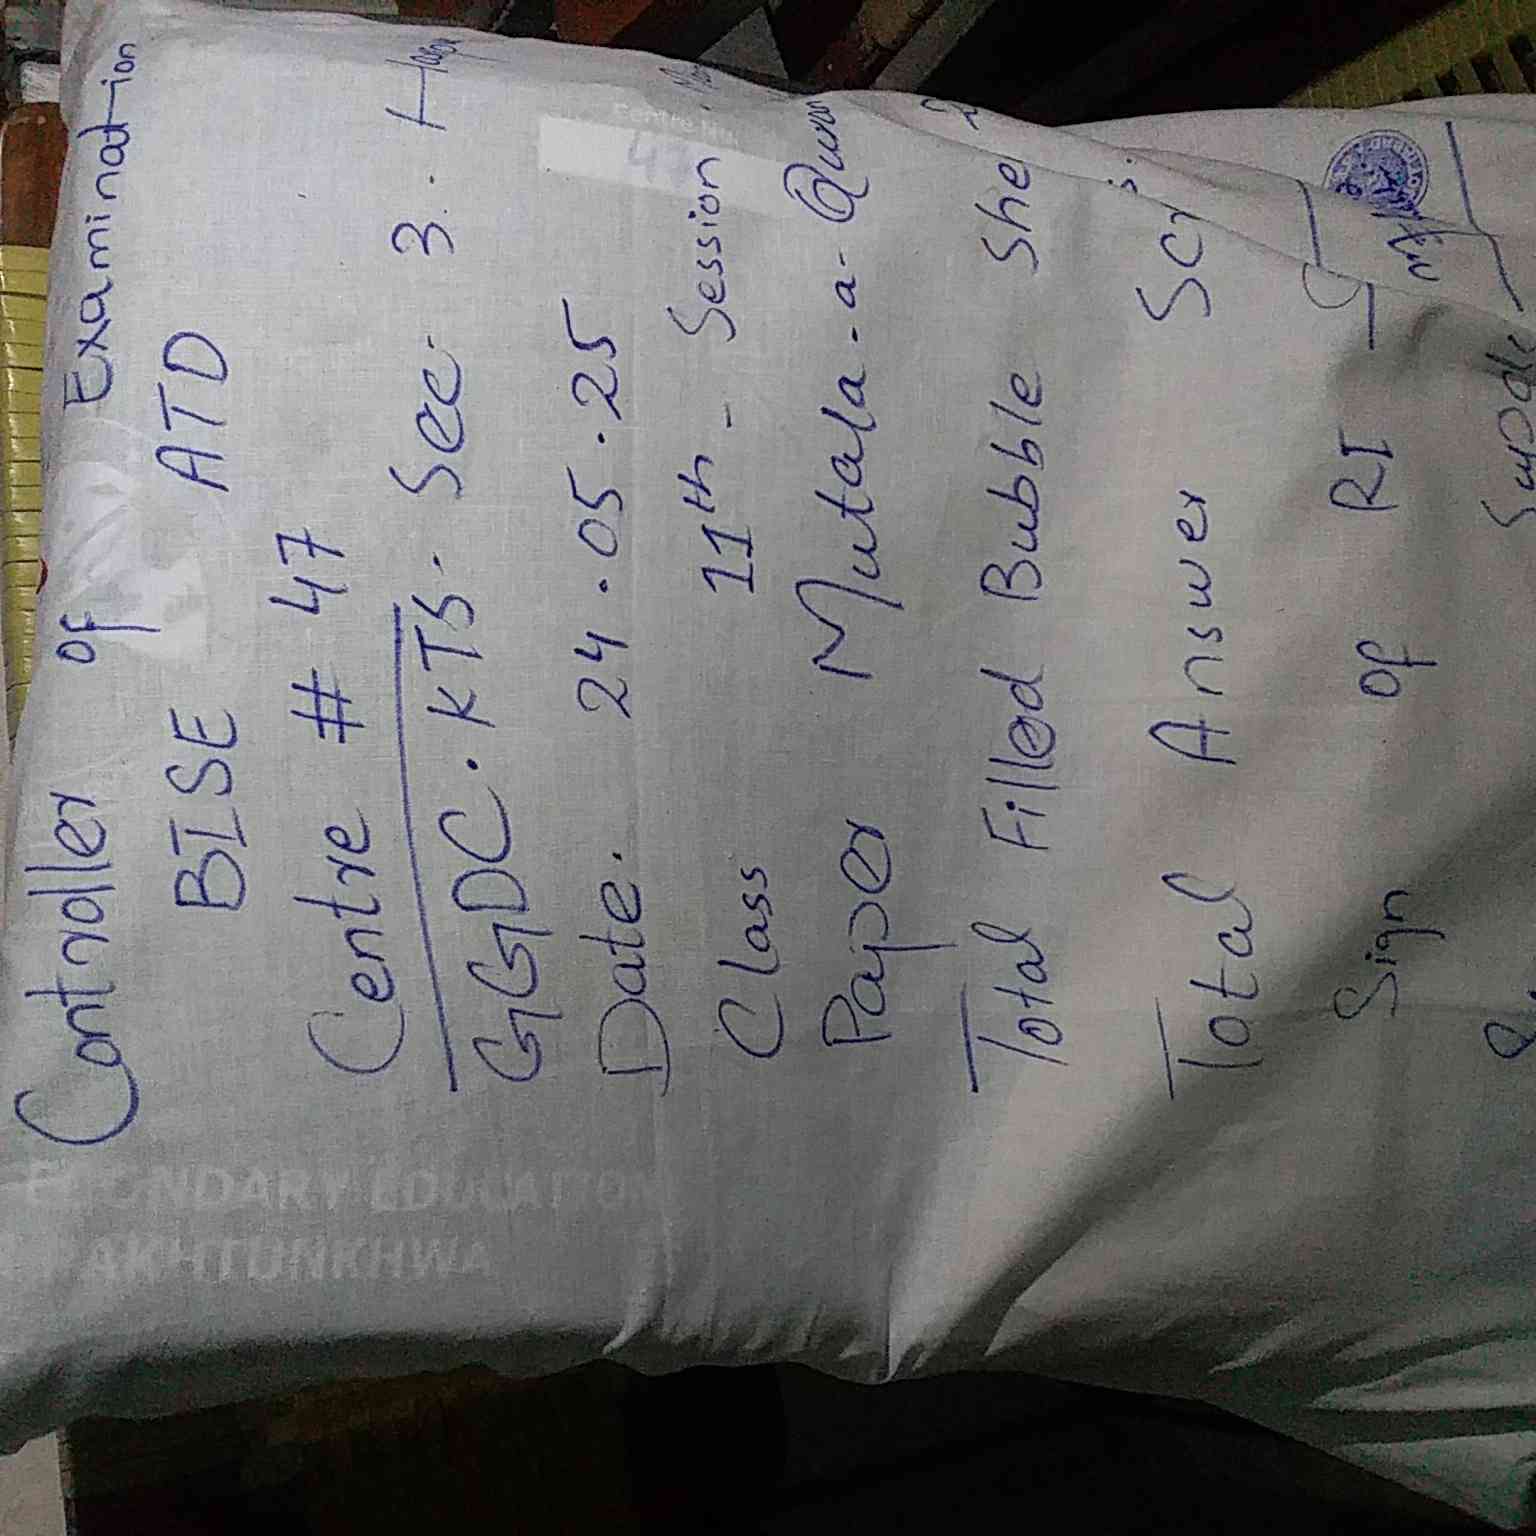 Controller of Examination
BISE ATD
Centre # 47
GGDC. KTS. Sec. 3.
Date. 24.05.25
Class 11th - Session
Paper Mutala-a-Quran
Total Filled Bubble She
Total Answer Scr
Sign of RI
ECONDARY EDUCATION
AKHTUNKHWA
Centre